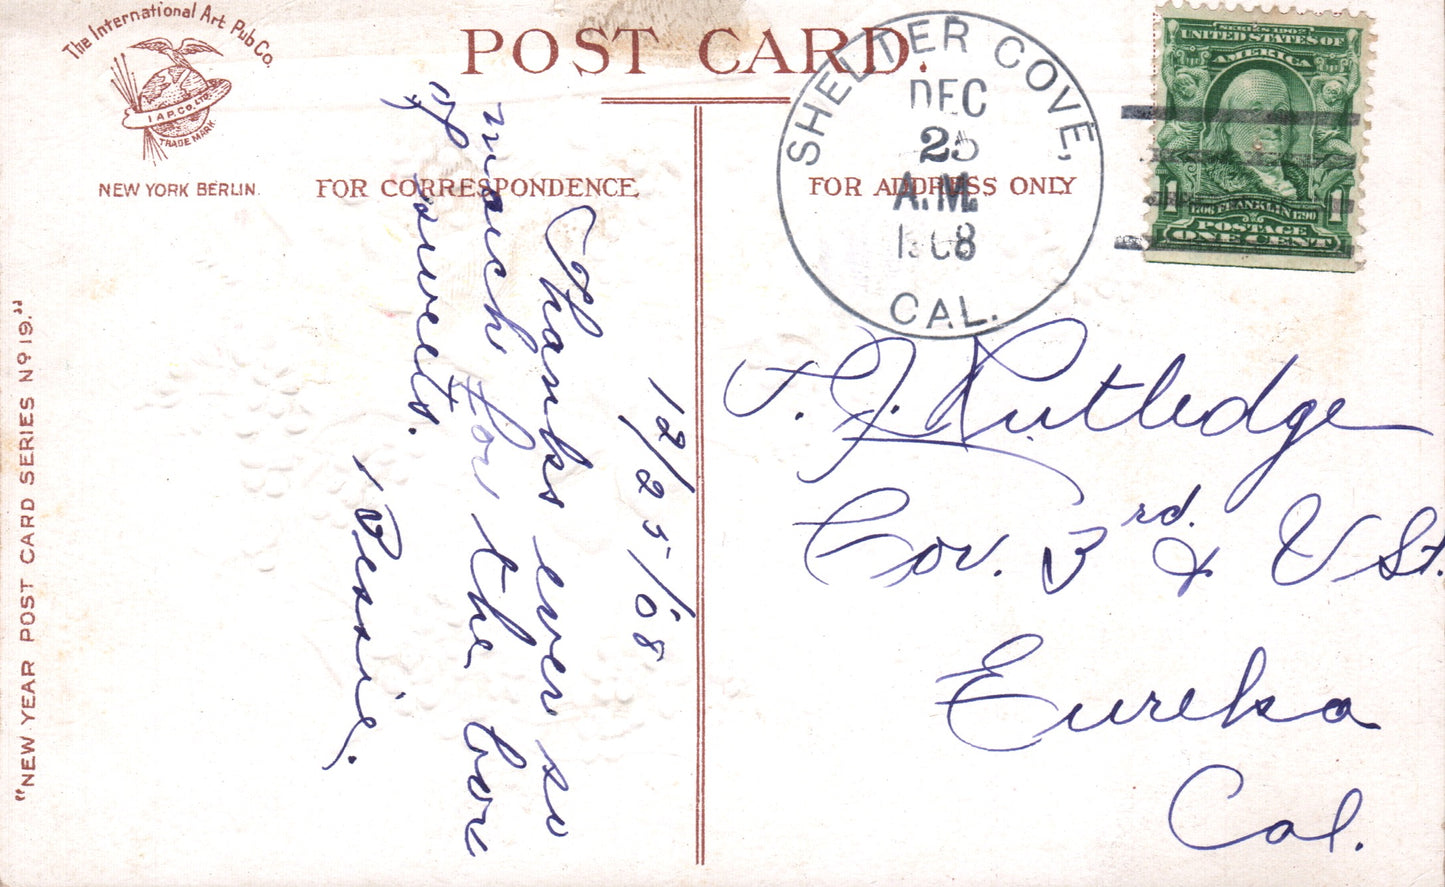 The International Art Pub Co.
I.A.P. CO. LTD.
TRADE MARK
NEW YORK BERLIN.
POST CARD.
FOR CORRESPONDENCE.
FOR ADDRESS ONLY
"NEW YEAR POST CARD SERIES Nº 19."
SHELTER COVE,
DEC
25
A.M.
1908
CAL.
SERIES 1902
UNITED STATES OF
AMERICA
1706 FRANKLIN 1790
1 1
POSTAGE
ONE CENT
12/25/08
Thanks ever so
much for the box
of sweets.
Bessie.
T. J. Rutledge
Cor. 3rd. & V St.
Eureka
Cal.